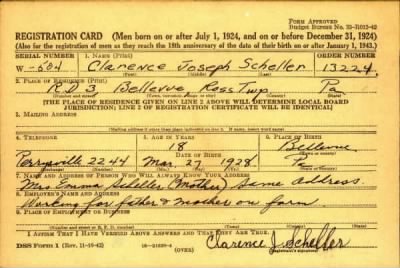 FORM APPROVED
Budget Bureau No. 33-R015-42
REGISTRATION CARD (Men born on or after July 1, 1924, and on or before December 31, 1924)
(Also for the registration of men as they reach the 18th anniversary of the date of their birth on or after January 1, 1943.)
SERIAL NUMBER 1. NAME (Print) ORDER NUMBER
W-504 Clarence Joseph Scheller 13224
(First) (Middle) (Last)
2. PLACE OF RESIDENCE (Print)
R.D 3 Bellevue Ross Twp Pa
(Number and street) (Town, township, village, or city) (County) (State)
[THE PLACE OF RESIDENCE GIVEN ON LINE 2 ABOVE WILL DETERMINE LOCAL BOARD
JURISDICTION; LINE 2 OF REGISTRATION CERTIFICATE WILL BE IDENTICAL]
3. MAILING ADDRESS
[Mailing address if other than place indicated on line 2. If same, insert word same]
4. TELEPHONE 5. AGE IN YEARS 6. PLACE OF BIRTH
18 Bellevue
DATE OF BIRTH
Perrysville 2244 Mar 27 1928 Pa
7. NAME AND ADDRESS OF PERSON WHO WILL ALWAYS KNOW YOUR ADDRESS
Mrs Emma Scheller (Mother) Same address
8. EMPLOYER'S NAME AND ADDRESS
Working for father & mother on farm
9. PLACE OF EMPLOYMENT OR BUSINESS
(Number and street or R. F. D. number) (Town) (County) (State)
I AFFIRM THAT I HAVE VERIFIED ABOVE ANSWERS AND THAT THEY ARE TRUE.
Clarence J. Scheller
DSS Form 1 (Rev. 11-16-42) (OVER) (Registrant's signature)